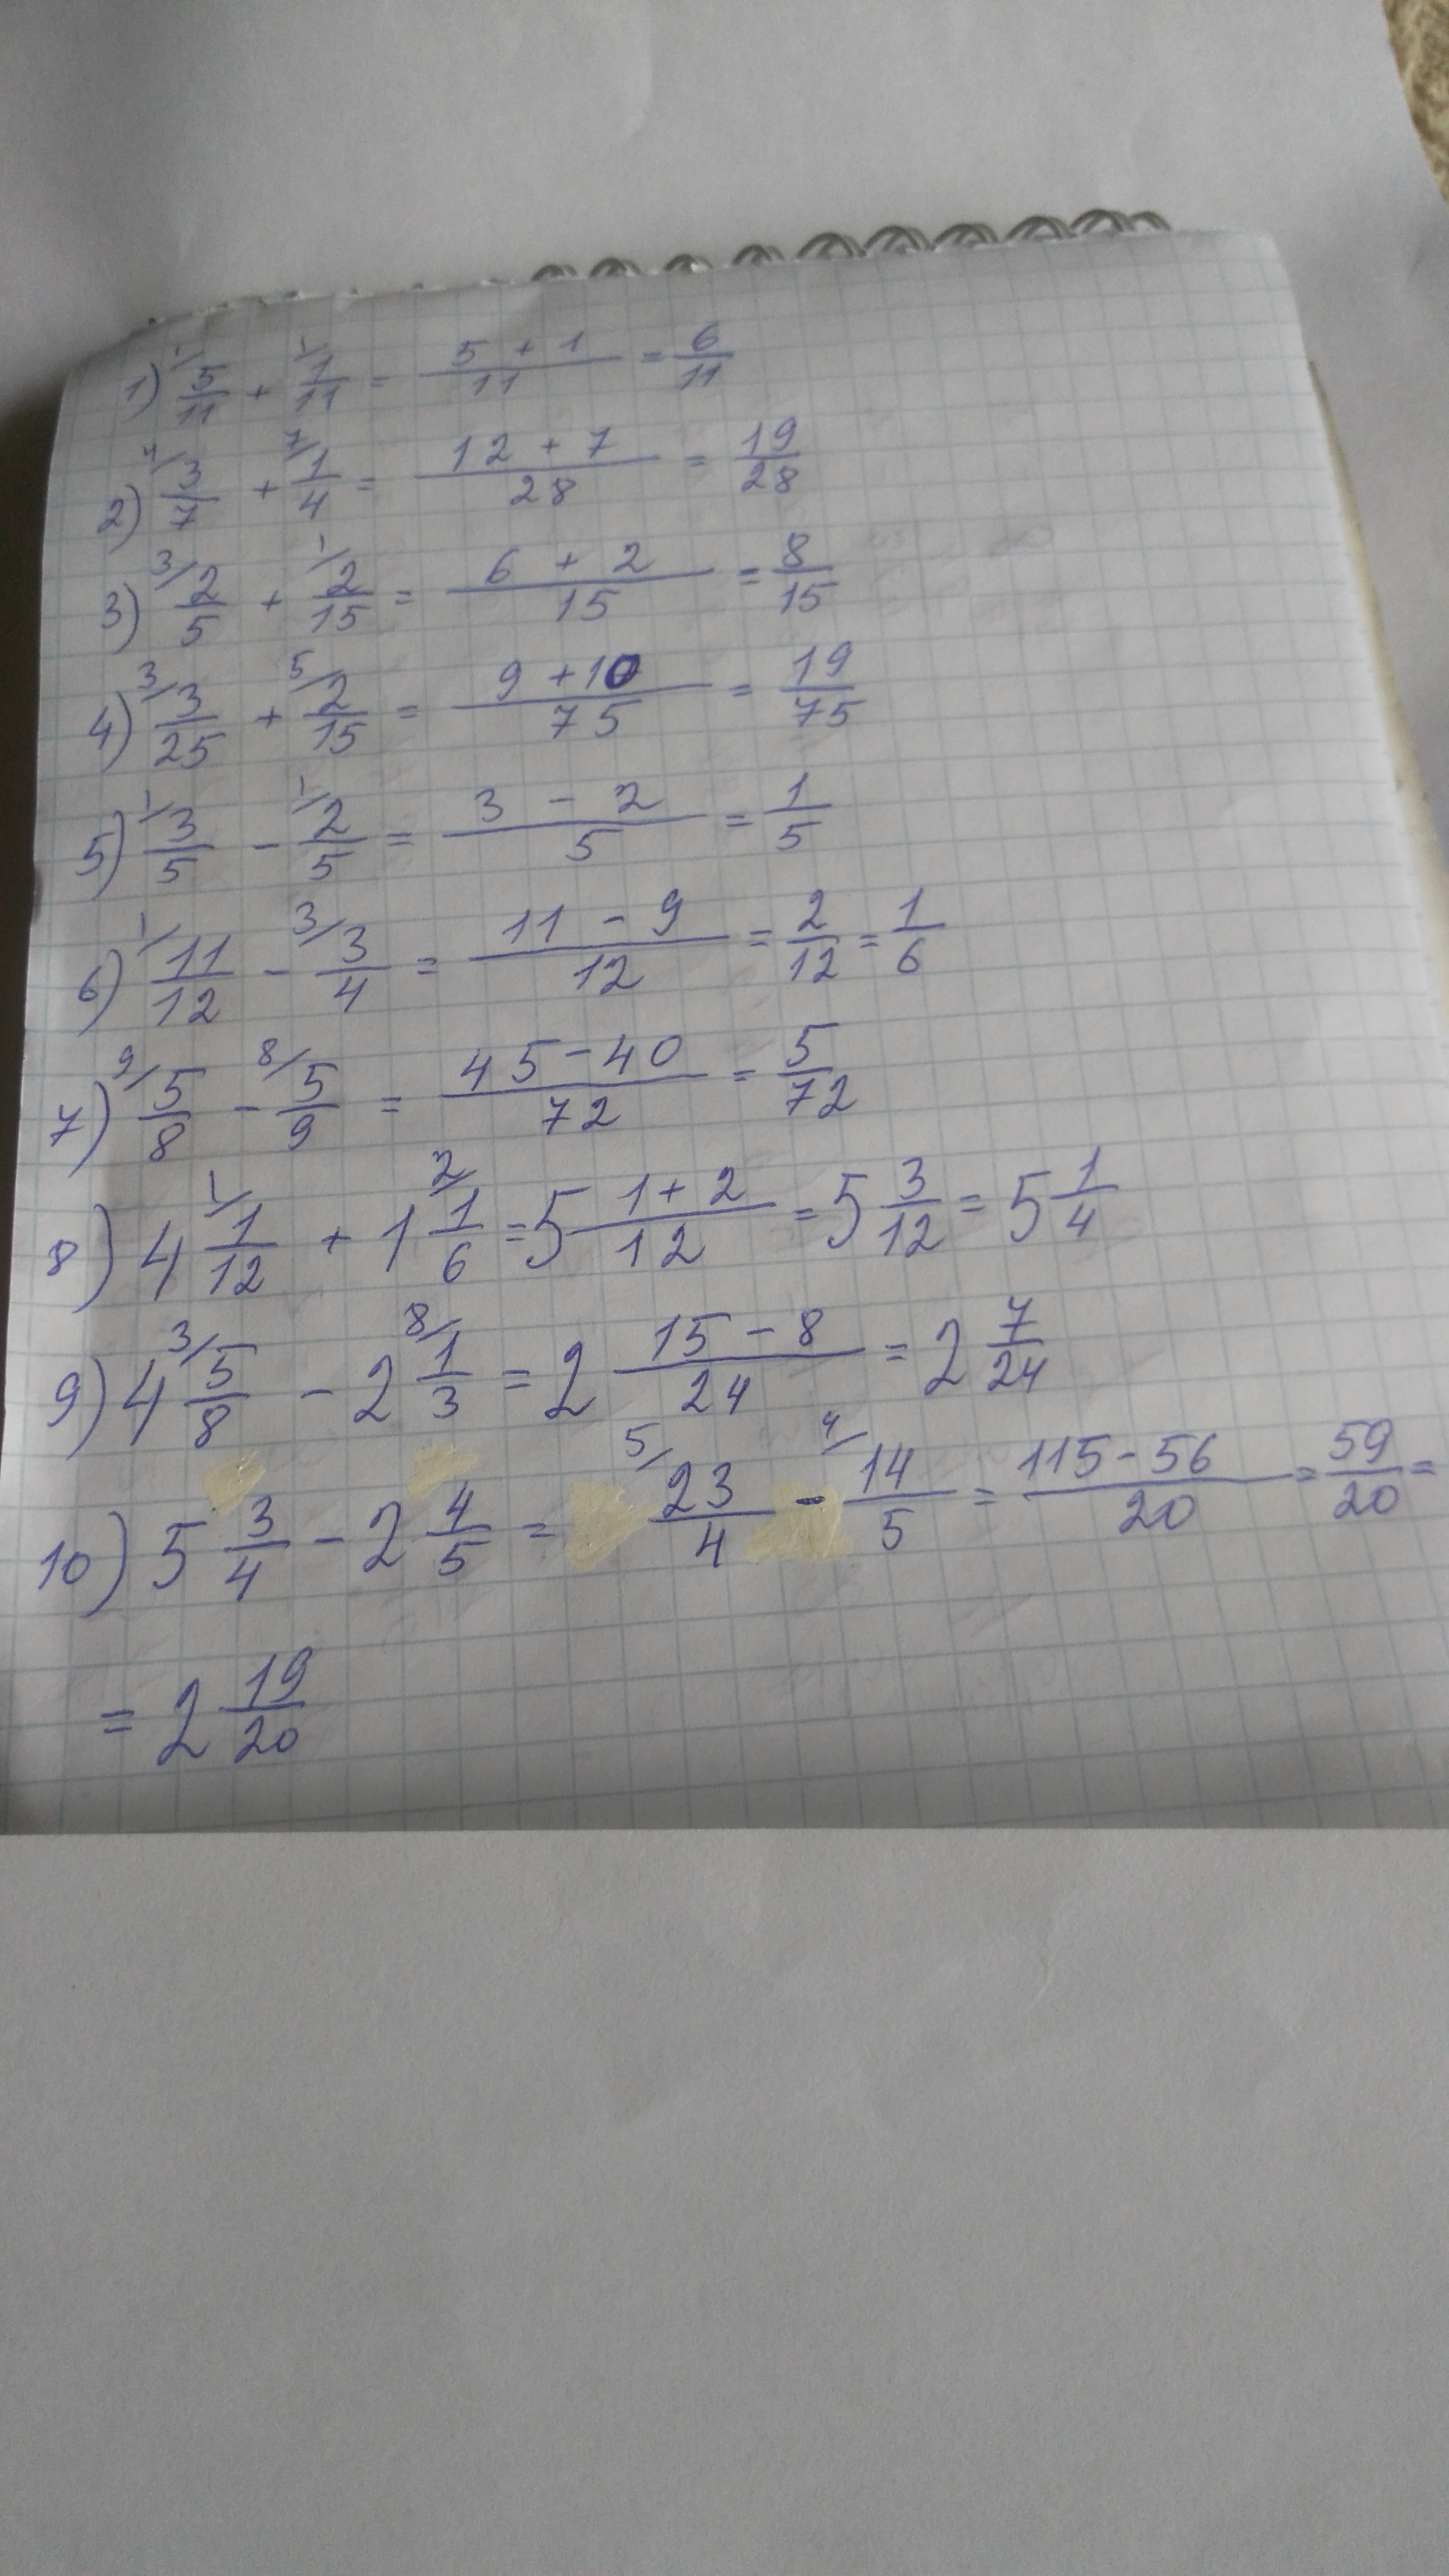 1) ¹/5/11 + ¹/1/11 = (5 + 1)/11 = 6/11
2) ⁴/3/7 + ⁷/1/4 = (12 + 7)/28 = 19/28
3) ³/2/5 + ¹/2/15 = (6 + 2)/15 = 8/15
4) ³/3/25 + ⁵/2/15 = (9 + 10)/75 = 19/75
5) ¹/3/5 - ¹/2/5 = (3 - 2)/5 = 1/5
6) ¹/11/12 - ³/3/4 = (11 - 9)/12 = 2/12 = 1/6
7) ⁹/5/8 - ⁸/5/9 = (45 - 40)/72 = 5/72
8) 4 ¹/1/12 + 1 ²/1/6 = 5 (1 + 2)/12 = 5 3/12 = 5 1/4
9) 4 ³/5/8 - 2 ⁸/1/3 = 2 (15 - 8)/24 = 2 7/24
10) 5 3/4 - 2 4/5 = ⁵/23/4 - ⁴/14/5 = (115 - 56)/20 = 59/20 =
= 2 19/20